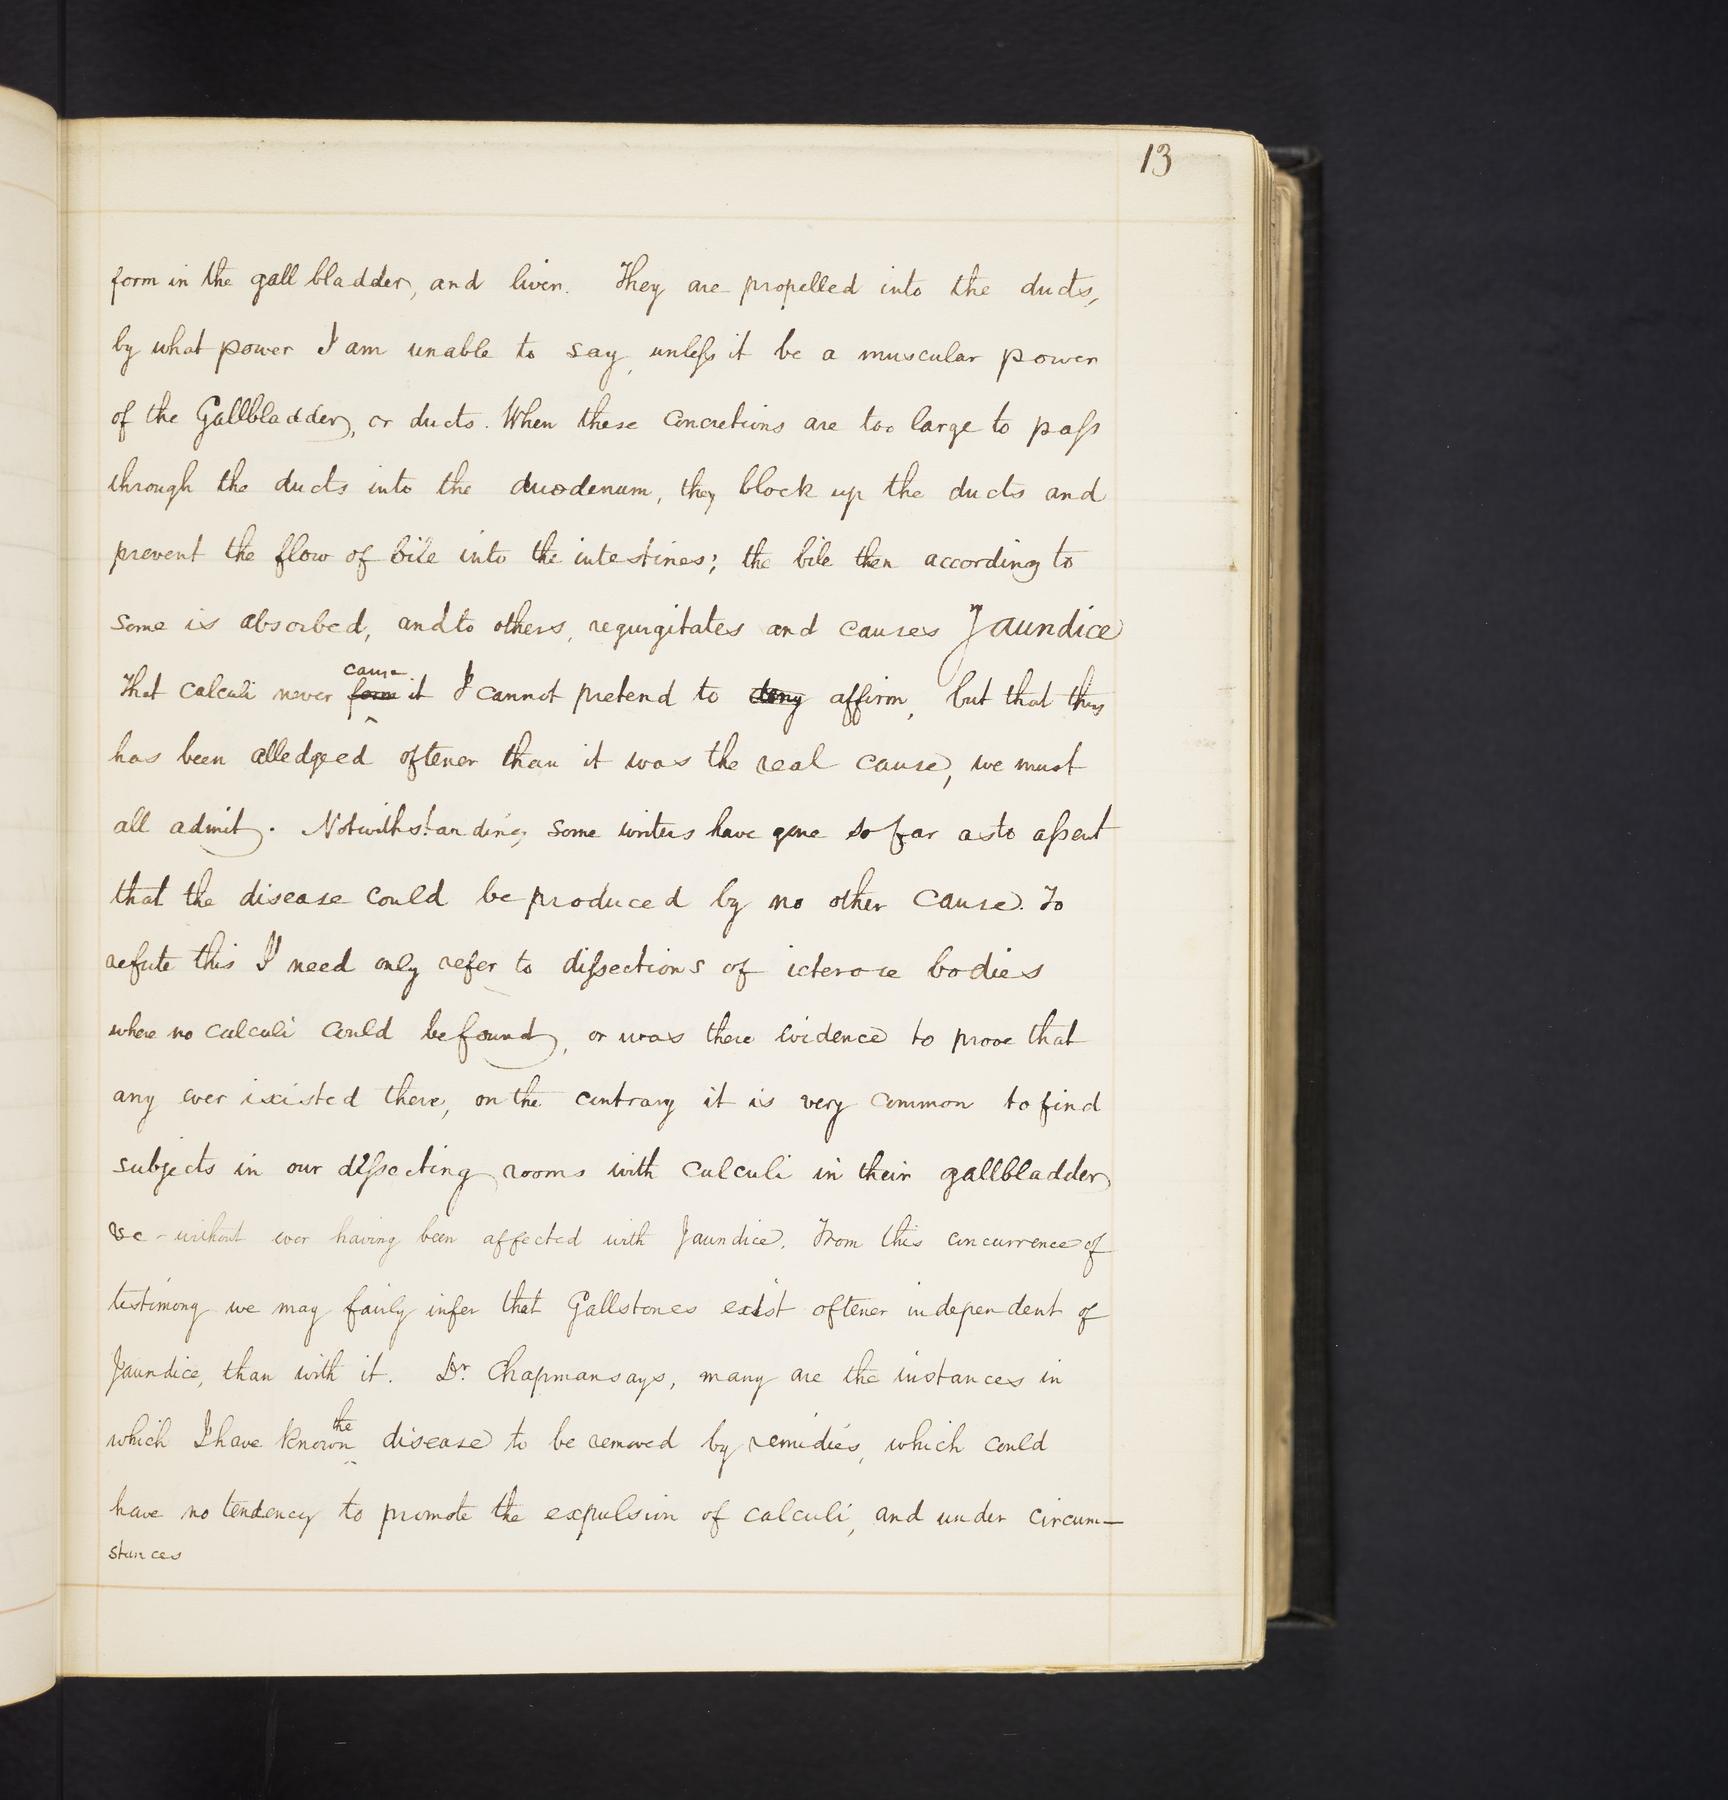 13
form in the gall bladder, and liver. They are propelled into the ducts,
by what power I am unable to say, unless it be a muscular power
of the Gallbladder, or ducts. When these concretions are too large to pass
through the ducts into the duodenum, they block up the ducts and
prevent the flow of bile into the intestines; the bile then according to
some is absorbed, and to others, regurgitates and causes Jaundice
cause
That calculi never form it I cannot pretend to deny affirm, but that this
has been alledgeed oftener than it was the real cause, we must
all admit. Notwithstanding, some writers have gone so far as to assert
that the disease could be produced by no other cause. To
refute this I need only refer to dissections of icterose bodies
where no calculi could be found, or was there evidence to prove that
any ever ixisted there, on the contrary it is very common to find
subjects in our dissecting rooms with calculi in their gallbladder
&c - without ever having been affected with Jaundice. From this concurrence of
testimony we may fairly infer that Gallstones exist oftener independent of
Jaundice, than with it. Dr. Chapman says, many are the instances in
the
which I have known disease to be removed by remidies, which could
have no tendency to promote the expulsion of calculi, and under circum-
stances